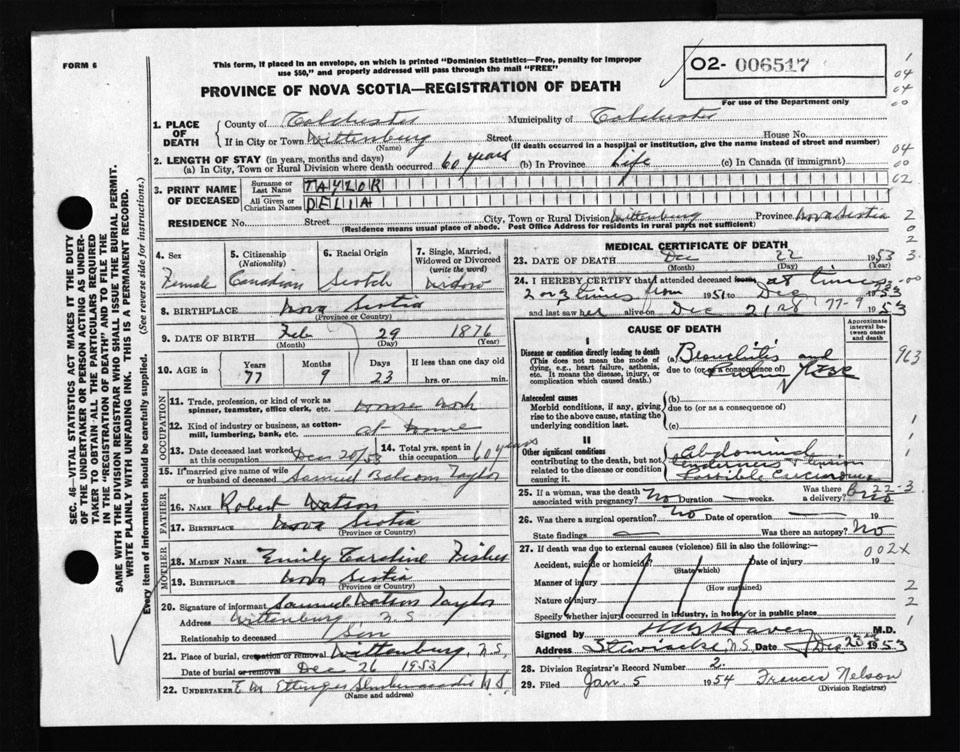 FORM 6
This form, if placed in an envelope, on which is printed "Dominion Statistics—Free, penalty for improper
use $50," and properly addressed will pass through the mail "FREE"
PROVINCE OF NOVA SCOTIA—REGISTRATION OF DEATH
O2- 006517
For use of the Department only
1. PLACE OF DEATH
County of Colchester Municipality of Colchester
If in City or Town Wittenburg Street House No.
(Name) (If death occurred in a hospital or institution, give the name instead of street and number)
2. LENGTH OF STAY (in years, months and days)
(a) In City, Town or Rural Division where death occurred 60 years (b) In Province Life (c) In Canada (if immigrant)
3. PRINT NAME OF DECEASED
Surname or Last Name TAYLOR
All Given or Christian Names DELIA
RESIDENCE No. Street City, Town or Rural Division Wittenburg Province Nova Scotia
(Residence means usual place of abode. Post Office Address for residents in rural parts not sufficient)
4. Sex Female
5. Citizenship (Nationality) Canadian
6. Racial Origin Scotch
7. Single, Married, Widowed or Divorced (write the word) Widow
8. BIRTHPLACE Nova Scotia
(Province or Country)
9. DATE OF BIRTH Feb 29 1876
(Month) (Day) (Year)
10. AGE in Years 77 Months 9 Days 23 If less than one day old hrs. or min.
OCCUPATION
11. Trade, profession, or kind of work as spinner, teamster, office clerk, etc. House Work
12. Kind of industry or business, as cotton-mill, lumbering, bank, etc. at Home
13. Date deceased last worked at this occupation Dec 20/53
14. Total yrs. spent in this occupation 60 years
15. If married give name of wife or husband of deceased Samuel Taylor
FATHER
16. NAME Robert Watson
17. BIRTHPLACE Nova Scotia
MOTHER
18. MAIDEN NAME Emily Caroline Fisher
19. BIRTHPLACE Nova Scotia
(Province or Country)
20. Signature of informant Samuel Watson Taylor
Address Wittenburg N.S.
Relationship to deceased Son
21. Place of burial, cremation or removal Wittenburg, N.S.
Date of burial or removal Dec 26 1953
22. UNDERTAKER E M Ettinger Shubenacadie N S
(Name and address)
MEDICAL CERTIFICATE OF DEATH
23. DATE OF DEATH Dec 22 1953
(Month) (Day) (Year)
24. I HEREBY CERTIFY that I attended deceased from at times
2 or 3 times from 1951 to Dec 1953
and last saw her alive on Dec 21st 77-9 1953
CAUSE OF DEATH
Approximate interval between onset and death
I
Disease or condition directly leading to death
(This does not mean the mode of dying, e.g., heart failure, asthenia, etc. It means the disease, injury, or complication which caused death.)
(a) Bronchitis and
due to (or as a consequence of)
Antecedent causes
Morbid conditions, if any, giving rise to the above cause, stating the underlying condition last.
(b)
due to (or as a consequence of)
(c)
II
Other significant conditions
contributing to the death, but not related to the disease or condition causing it.
Abdominal
tenderness
Possible Carcinoma
25. If a woman, was the death associated with pregnancy? No Duration weeks. Was there a delivery? No
26. Was there a surgical operation? No Date of operation 19
State findings Was there an autopsy? No
27. If death was due to external causes (violence) fill in also the following:—
Accident, suicide or homicide? Date of injury 19
(State which)
Manner of injury
(How sustained)
Nature of injury
Specify whether injury occurred in industry, in home or in public place
Signed by M.D.
Address Stewiacke, N.S. Date Dec 23rd 1953
28. Division Registrar's Record Number 2
29. Filed Jan. 5 1954 Frances Nelson
(Division Registrar)
SEC. 46—VITAL STATISTICS ACT MAKES IT THE DUTY
OF THE UNDERTAKER OR PERSON ACTING AS UNDER-
TAKER TO OBTAIN ALL THE PARTICULARS REQUIRED
IN THE "REGISTRATION OF DEATH" AND TO FILE THE
SAME WITH THE DIVISION REGISTRAR WHO SHALL ISSUE THE BURIAL PERMIT.
WRITE PLAINLY WITH UNFADING INK. THIS IS A PERMANENT RECORD.
Every item of information should be carefully supplied. (See reverse side for instructions.)
1
04
04
00
04
00
02
2
0
2
3
963
1
1
22-3
002X
2
2
1